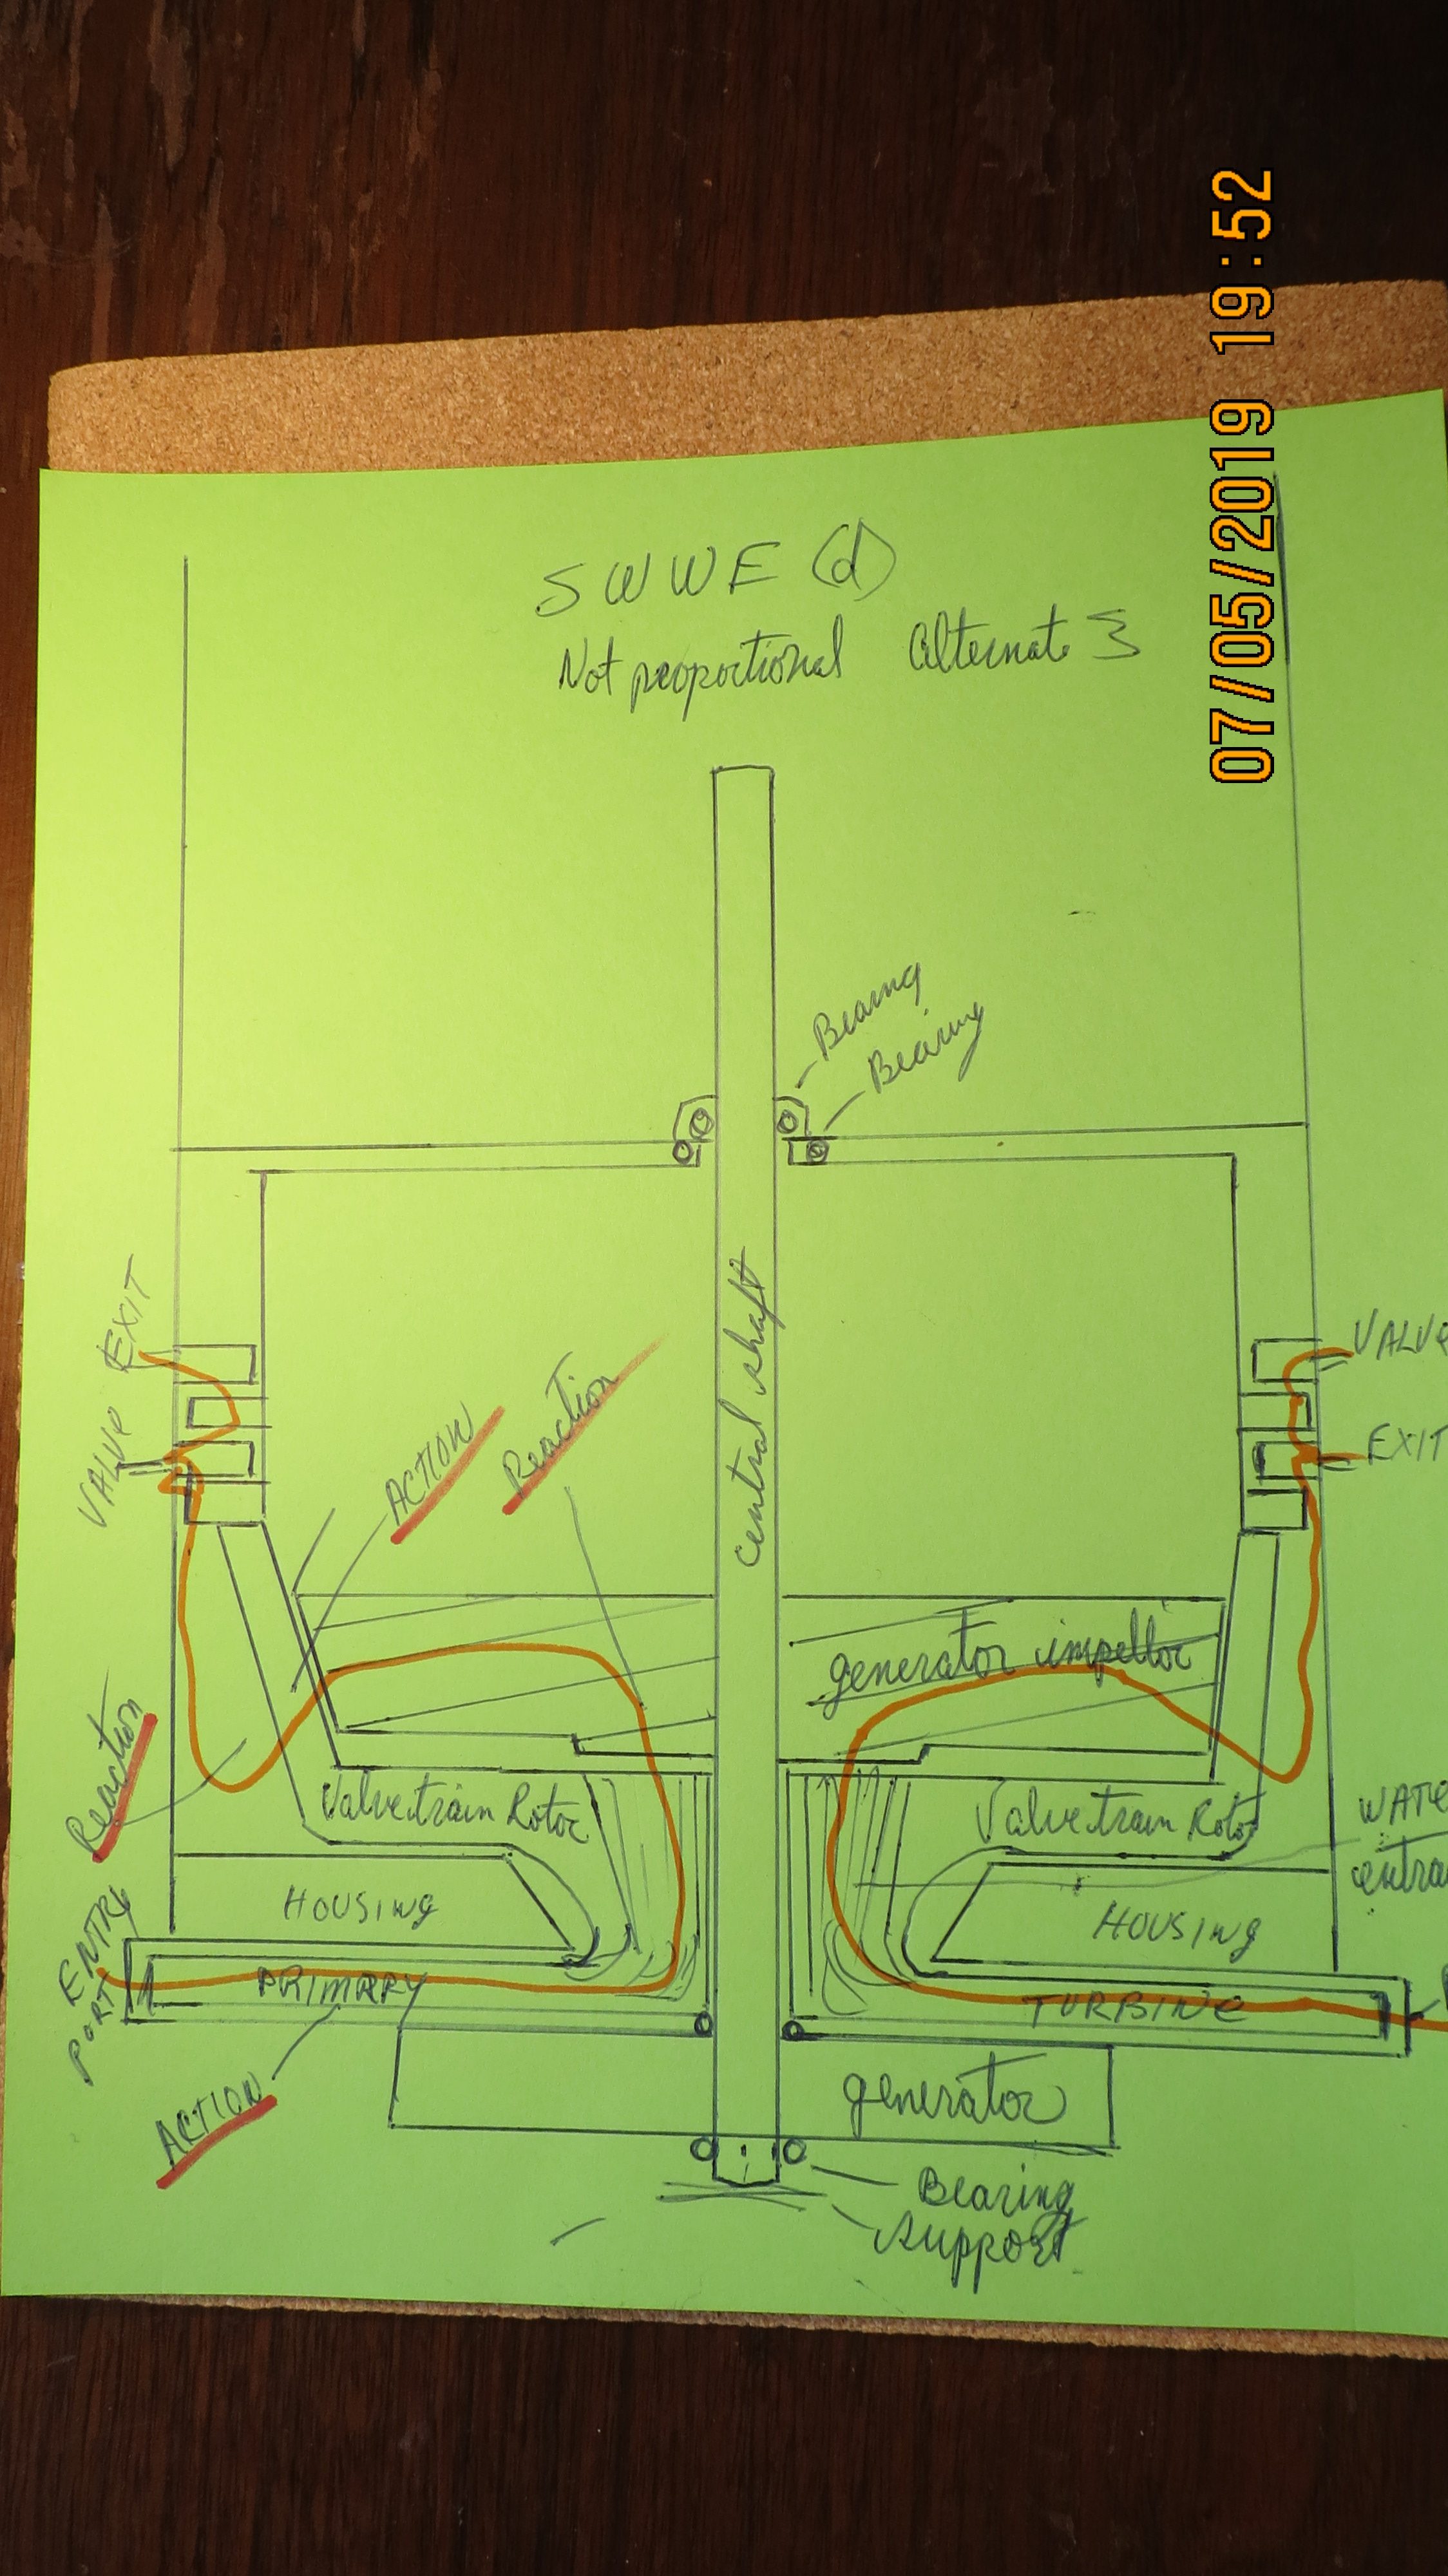 07/05/2019 19:52
SWWE (d)
Not proportional Alternate 3
Bearing
Bearing
central shaft
EXIT
VALVE
VALVE
EXIT
ACTION
Reaction
generator impellor
Reaction
Valvetrain Rotor
Valvetrain Rotor
WATE
entra
HOUSING
HOUSING
ENTRY
PORT
PRIMARY
TURBINE
ACTION
generator
Bearing
support